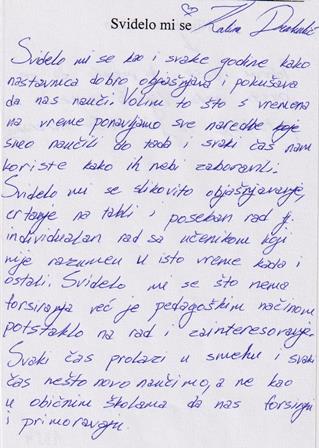 Svidelo mi se
Svidelo mi se kao i svake godine kako
nastavnica dobro objašnjava i pokušava
da nas nauči. Volim to što s vremena
na vreme ponavljamo sve naredbe koje
smo naučili do tada i svaki čas nam
koriste kako ih nebi zaboravili.
Svidelo mi se slikovito objašnjavanje,
crtanje na tabli i poseban rad tj.
individualan rad sa učenikom koji
nije razumeo u isto vreme kada i
ostali. Svidelo mi se što nema
forsiranja već je pedagoškim načinom
potstaklo na rad i zainteresovanje.
Svaki čas prolazi u smehu i svaki
čas nešto novo naučimo, a ne kao
u običnim školama da nas forsiraju
i primoravaju.